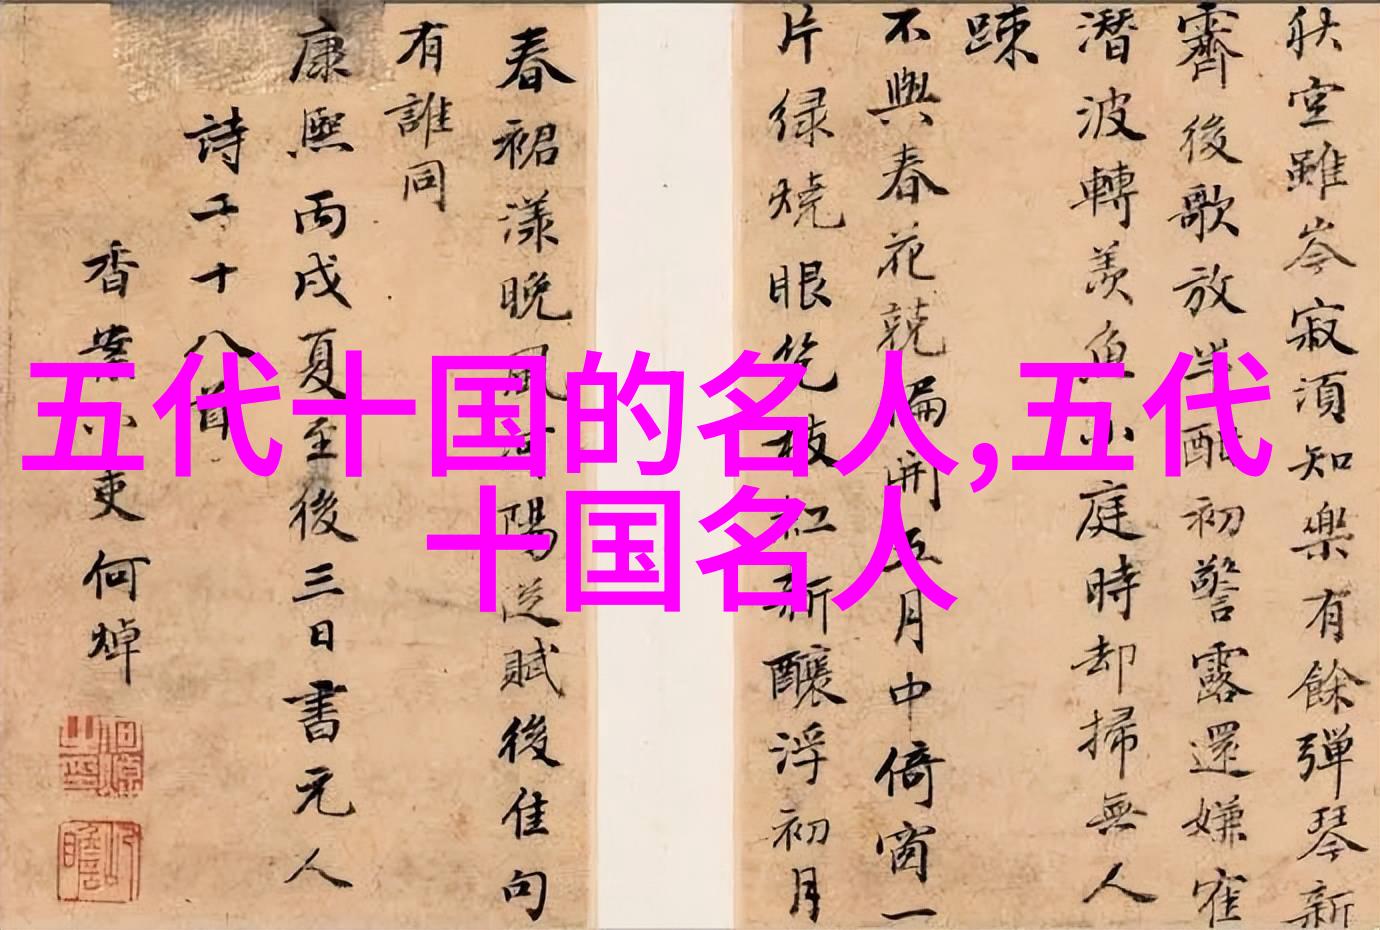 秋空雖岑寂須知樂有餘彈琴新
霽後歌放半酣初警露還嫌
潛波轉羨魚小庭時却掃無人
踈
不與春花競偏開五月中倚窗一
片緑燒眼幾枝紅新釀浮初月
春裙漾晚風河陽從賦後佳句
有誰同
康熙丙戌夏至後三日書元人
詩二十八首
香案小吏何焯
五代十国的名人,五代
十国名人